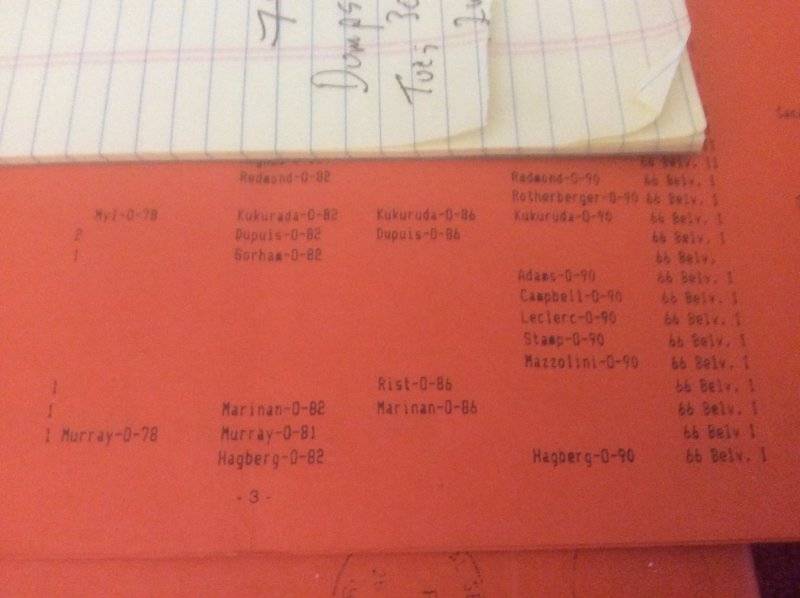 Dumps
Redmond-O-82 Redmond-O-90 66 Belv. 1
Rotherberger-O-90 66 Belv. 1
Kukurada-O-82 Kukuruda-O-86 Kukuruda-O-90 66 Belv. 1
2 Dupuis-O-82 Dupuis-O-86 66 Belv. 1
1 Gorham-O-82 66 Belv.
Adams-O-90 66 Belv. 1
Campbell-O-90 66 Belv. 1
Leclerc-O-90 66 Belv. 1
Stamp-O-90 66 Belv. 1
Mazzolini-O-90 66 Belv. 1
1 Rist-O-86 66 Belv. 1
1 Marinan-O-82 Marinan-O-86 66 Belv. 1
1 Murray-O-78 Murray-O-81 66 Belv 1
Hagberg-O-82 Hagberg-O-90 66 Belv. 1
- 3 -